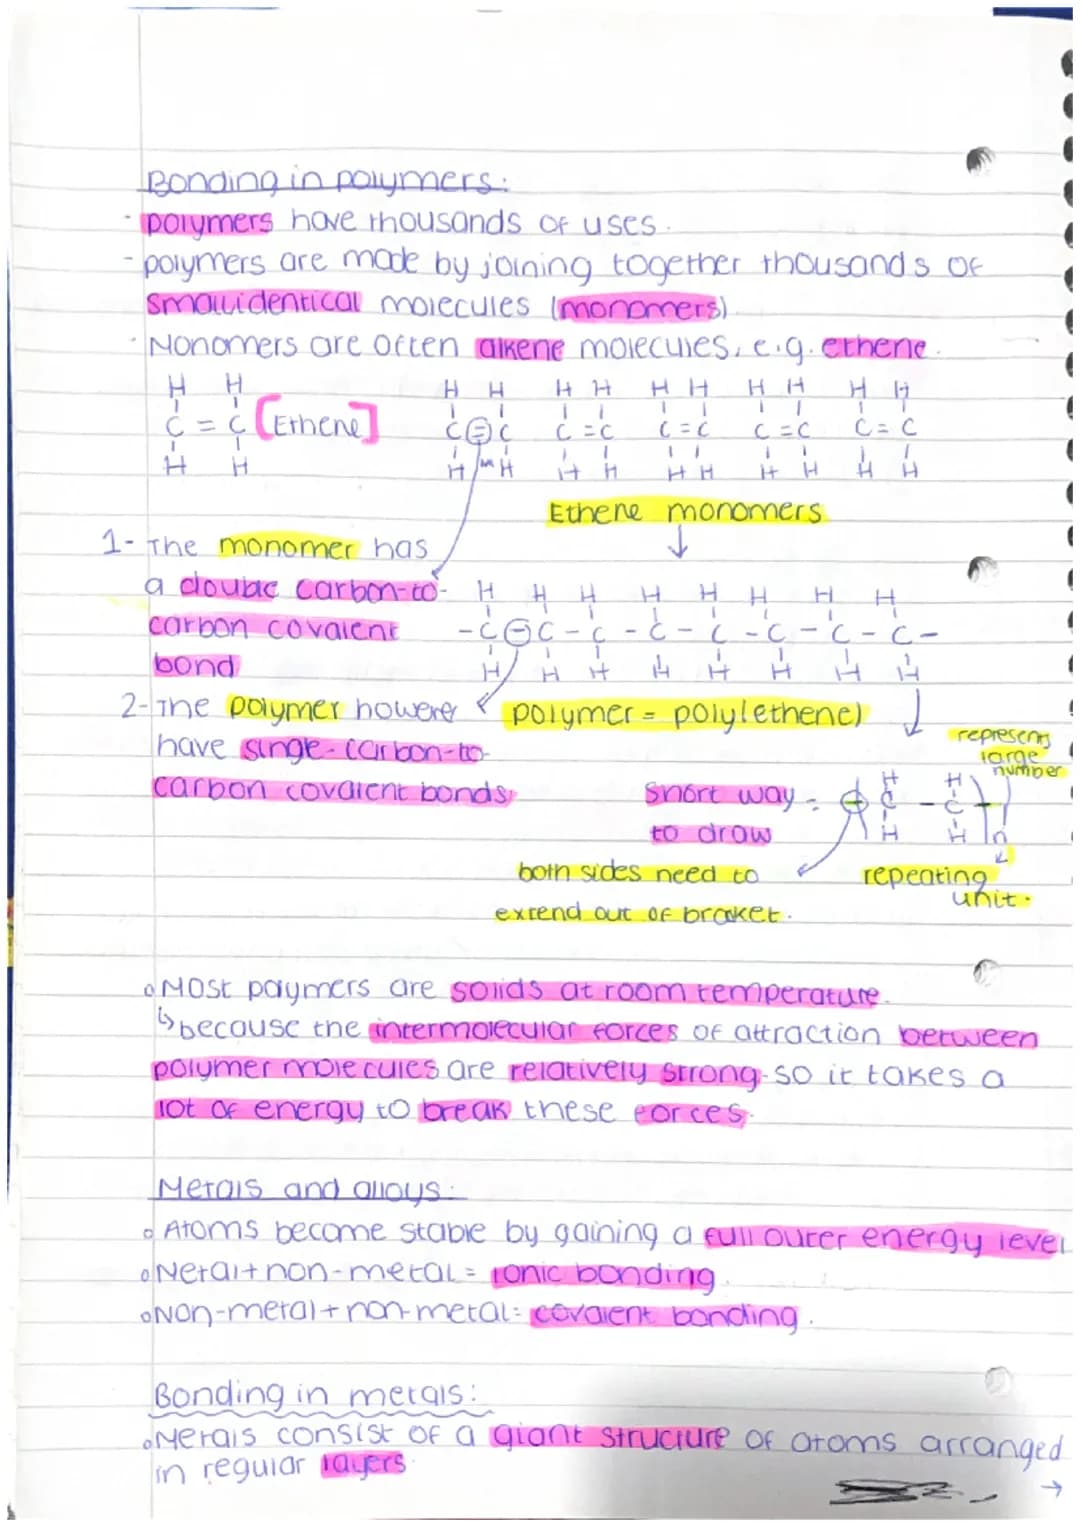 Bonding in polymers:
- polymers have thousands of uses.
- polymers are made by joining together thousands of
small identical molecules (monomers)
- Monomers are often alkene molecules, e.g. ethene.
H H H H H H H H H H H H
C = C [Ethene] C = C C = C C = C C = C C = C
H H H H H H H H H H H H
Ethene monomers
↓
1- The monomer has
a double carbon-to- H H H H H H H H
carbon covalent -C-C-C-C-C-C-C-C-
bond H H H H H H H H
2- The polymer however polymer = poly(ethene)
have single-carbon-to-
carbon covalent bonds
represents
large
number
Short way =
to draw
H H
C - C
H H n
both sides need to
extend out of bracket.
repeating
unit.
Most polymers are solids at room temperature.
↳ because the intermolecular forces of attraction between
polymer molecules are relatively strong-so it takes a
lot of energy to break these forces.
Metals and alloys.
Atoms become stable by gaining a full outer energy level
Metal+non-metal = ionic bonding.
Non-metal+non-metal= covalent bonding.
Bonding in metals:
Metals consist of a giant structure of atoms arranged
in regular layers
→